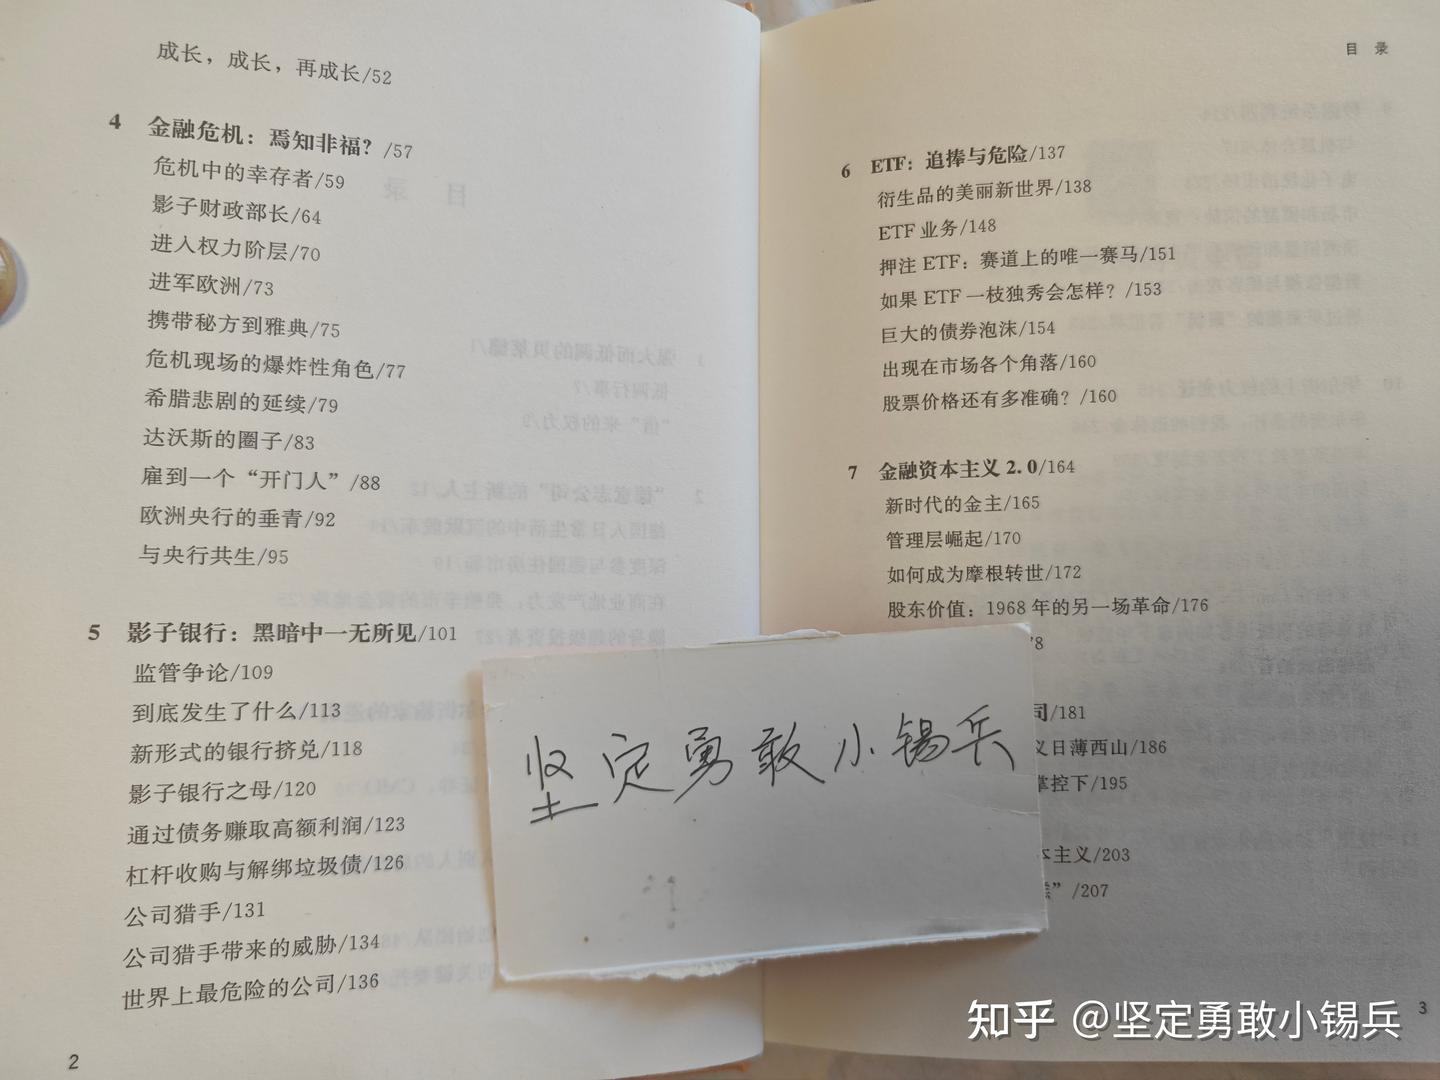 成长，成长，再成长/52
4 金融危机：焉知非福？/57
危机中的幸存者/59
影子财政部长/64
进入权力阶层/70
进军欧洲/73
携带秘方到雅典/75
危机现场的爆炸性角色/77
希腊悲剧的延续/79
达沃斯的圈子/83
雇到一个“开门人”/88
欧洲央行的垂青/92
与央行共生/95
5 影子银行：黑暗中一无所见/101
监管争论/109
到底发生了什么/113
新形式的银行挤兑/118
影子银行之母/120
通过债务赚取高额利润/123
杠杆收购与解绑垃圾债/126
公司猎手/131
公司猎手带来的威胁/134
世界上最危险的公司/136
2
目 录
6 ETF：追捧与危险/137
衍生品的美丽新世界/138
ETF 业务/148
押注 ETF：赛道上的唯一赛马/151
如果 ETF 一枝独秀会怎样？/153
巨大的债券泡沫/154
出现在市场各个角落/160
股票价格还有多准确？/160
7 金融资本主义 2.0/164
新时代的金主/165
管理层崛起/170
如何成为摩根转世/172
股东价值：1968 年的另一场革命/176
78
司/181
义日薄西山/186
掌控下/195
本主义/203
”/207
3
坚定勇敢小锡兵
知乎 @坚定勇敢小锡兵